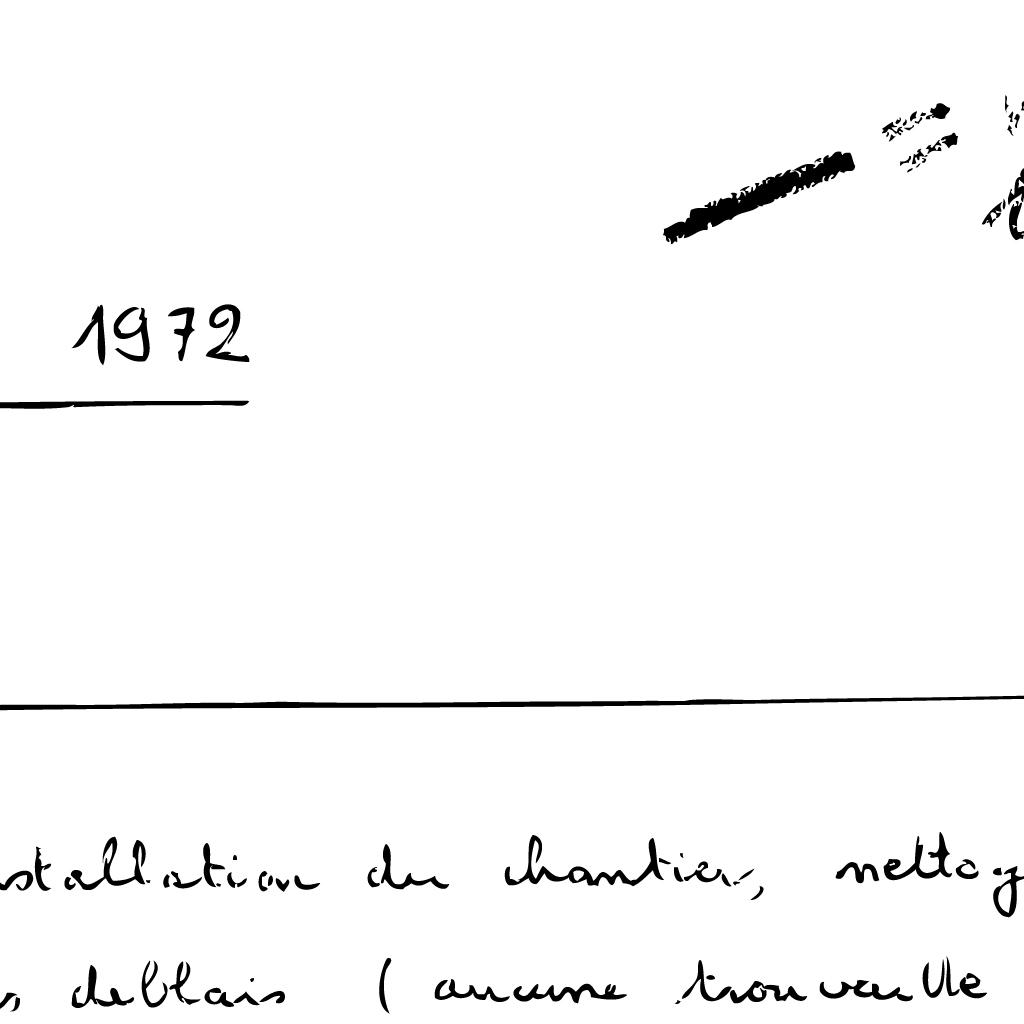 1972
nstallation du chantier, nettoy
s deblais ( aucune trouvaille